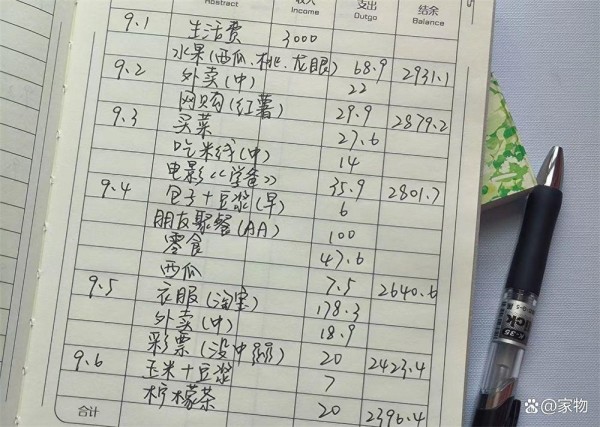 Abstract 收入 Income 支出 Outgo 结余 Balance
9.1 生活费 3000
水果(西瓜、桃、龙眼) 68.9 2931.1
9.2 外卖(中) 22
网购(红薯) 29.9 2879.2
9.3 买菜 27.6
吃米线(中) 14
电影《学爸》 35.9 2801.7
9.4 包子+豆浆(早) 6
朋友聚餐(AA) 100
零食 47.6
西瓜 7.5 2640.6
9.5 衣服(淘宝) 178.3
外卖(中) 18.9
彩票(没中) 20 2423.4
9.6 玉米+豆浆 7
合计 柠檬茶 20 2396.4
K-35
@家物